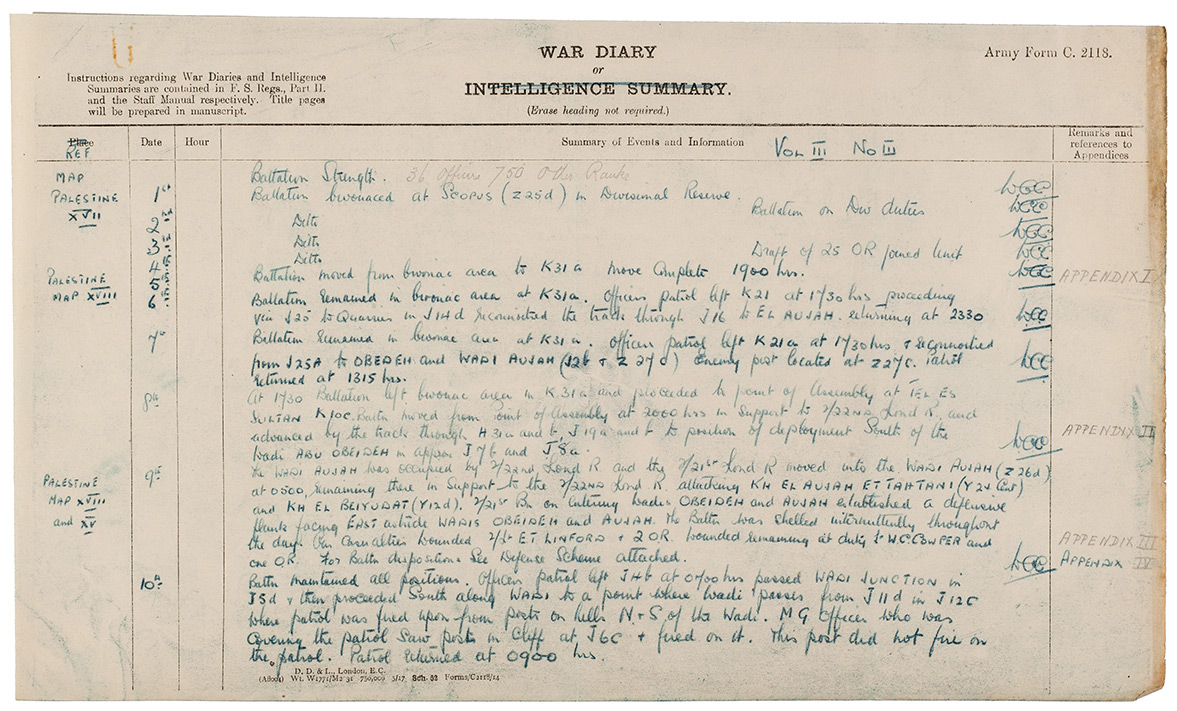 WAR DIARY
or
INTELLIGENCE SUMMARY.
(Erase heading not required.)
Army Form C. 2118.
Instructions regarding War Diaries and Intelligence
Summaries are contained in F. S. Regs., Part II.
and the Staff Manual respectively. Title pages
will be prepared in manuscript.
Place
REF
Date
Hour
Summary of Events and Information
VOL III No III
Remarks and
references to
Appendices
MAP
Battalion Strength. 36 officers 750 Other Ranks
PALESTINE
XVII
1st
Battalion bivouaced at SCOPUS (Z25d) in Divisional Reserve.
WCC
2
Ditto
Battalion on Div duties
WCC
3
Ditto
WCC
4
Ditto
Draft of 25 OR joined Unit
WCC
PALESTINE
MAP XVIII
5
Battalion moved from bivouac area to K31a move complete 1900 hrs.
WCC
APPENDIX I
6
Battalion remained in bivouac area at K31a. Officers patrol left K21 at 1730 hrs proceeding
via J25 to Quarries in J14d reconnoitred the track through J16 to EL AUJAH. returning at 2330
WCC
7th
Battalion remained in bivouac area at K31a. Officers patrol left K21a at 1730 hrs & reconnoitred
from J25A to OBEIDEH and WADI AUJAH (J2b & Z27d) Enemy post located at Z27c. Patrol
returned at 1315 hrs.
WCC
8th
At 1730 Battalion left bivouac area in K31a and proceeded to point of Assembly at TEL ES
SULTAN K10c. Battn moved from Point of Assembly at 2000 hrs in Support to 2/22ND Lond R. and
advanced by the track through H31a and b, J19a and b to position of deployment South of the
Wadi ABU OBEIDEH in approx J7b and J8a.
WCC
APPENDIX II
PALESTINE
MAP XVIII
and XV
9th
The WADI AUJAH was occupied by 2/22nd Lond R and the 2/21st Lond R moved into the WADI AUJAH (Z26d)
at 0500, remaining there in Support to the 2/22ND Lond R. attacking KH EL AUJAH ET TAHTANI (Y24 Cent)
and KH EL BEIYUDAT (Y12d). 2/21st Bn on entering wadis OBEIDEH and AUJAH established a defensive
flank facing EAST astride WADIS OBEIDEH and AUJAH. The Battn was shelled intermittently throughout
the day. Our Casualties wounded 2/Lt E T LINFORD & 2 OR. wounded remaining at duty Lt W C COWPER and
one OR. For Battn dispositions See Defence Scheme attached.
WCC
APPENDIX III
APPENDIX IV
10th
Battn maintained all positions. Officers patrol left J4b at 0700 hrs passed WADI JUNCTION in
J5d & then proceeded South along WADI to a point where wadi passes from J11d in J12c
where patrol was fired upon from posts on hills N & S of the Wadi. MG Officer who was
covering the patrol saw post in Cliff at J6c & fired on it. This post did not fire on
the patrol. Patrol returned at 0900 hrs.
D. D. & L., London, E.C.
Wt. W1771/M2 31 750,000 5/17 Sch. 52 Forms/C2118/14